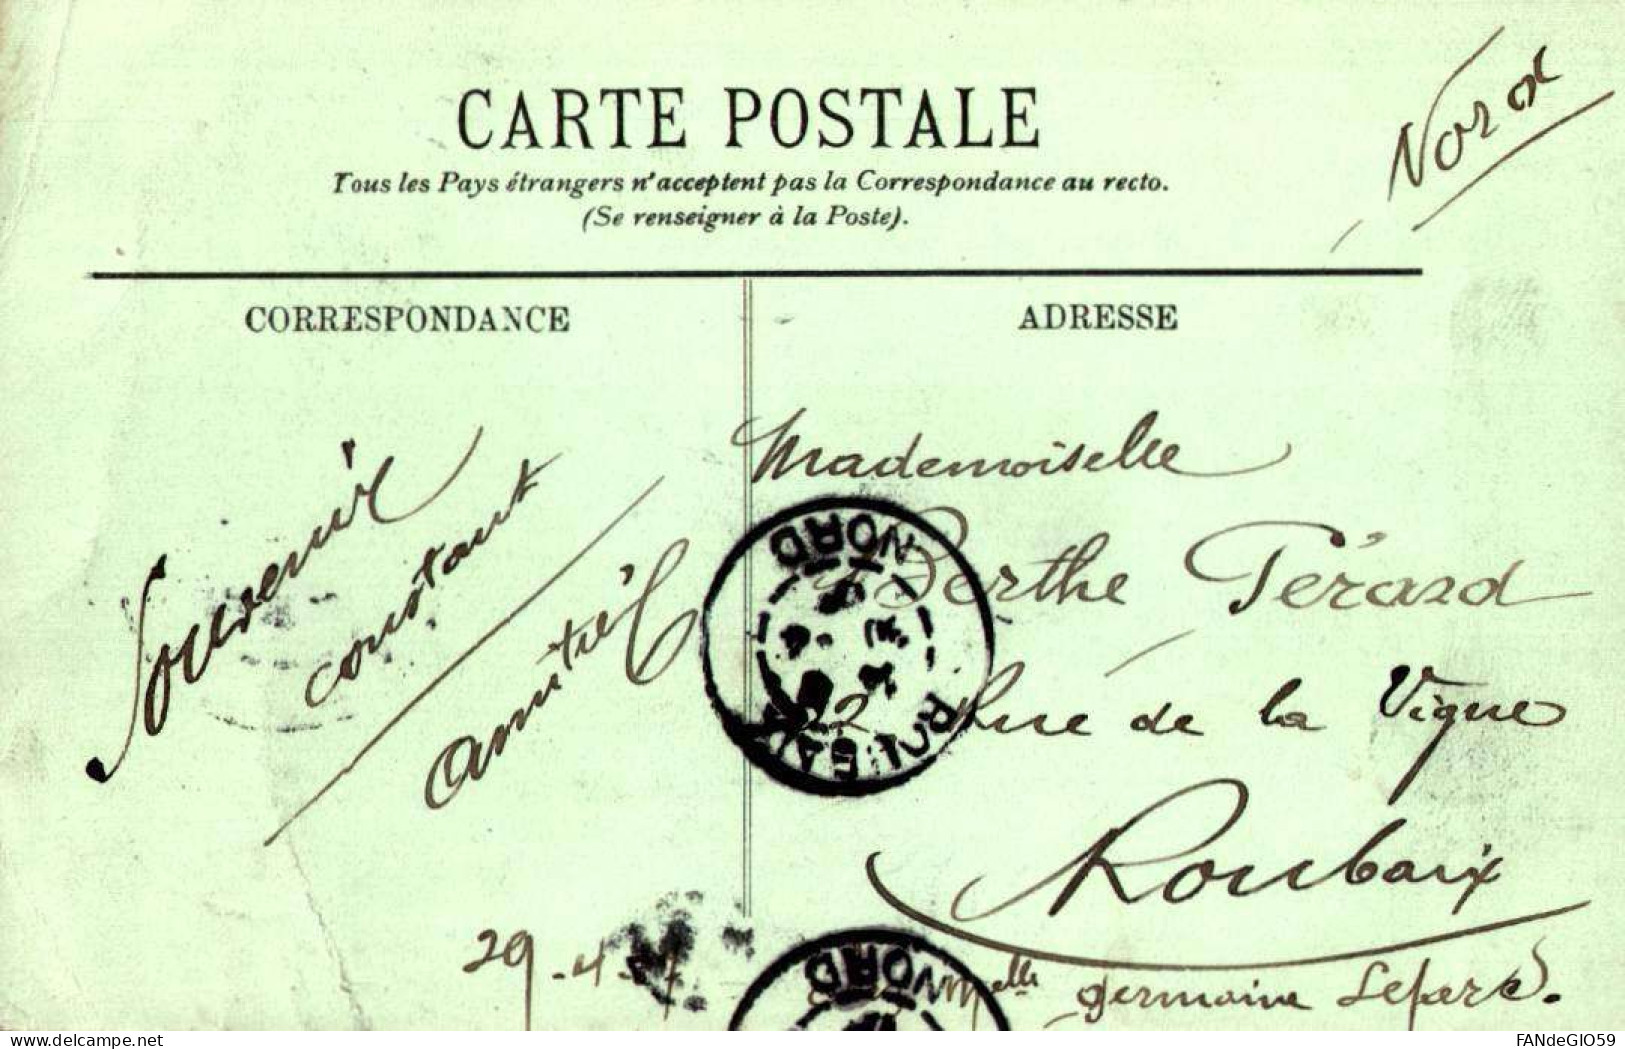 CARTE POSTALE
Tous les Pays étrangers n'acceptent pas la Correspondance au recto.
(Se renseigner à la Poste).
CORRESPONDANCE
Souvenir
constant
amitié
29-4-
ADRESSE
Mademoiselle
Berthe Pérard
22 Rue de la Vigne
Roubaix
Melle germaine
ROUBAIX
NORD
NORD
delcampe.net
FANdeGIO59